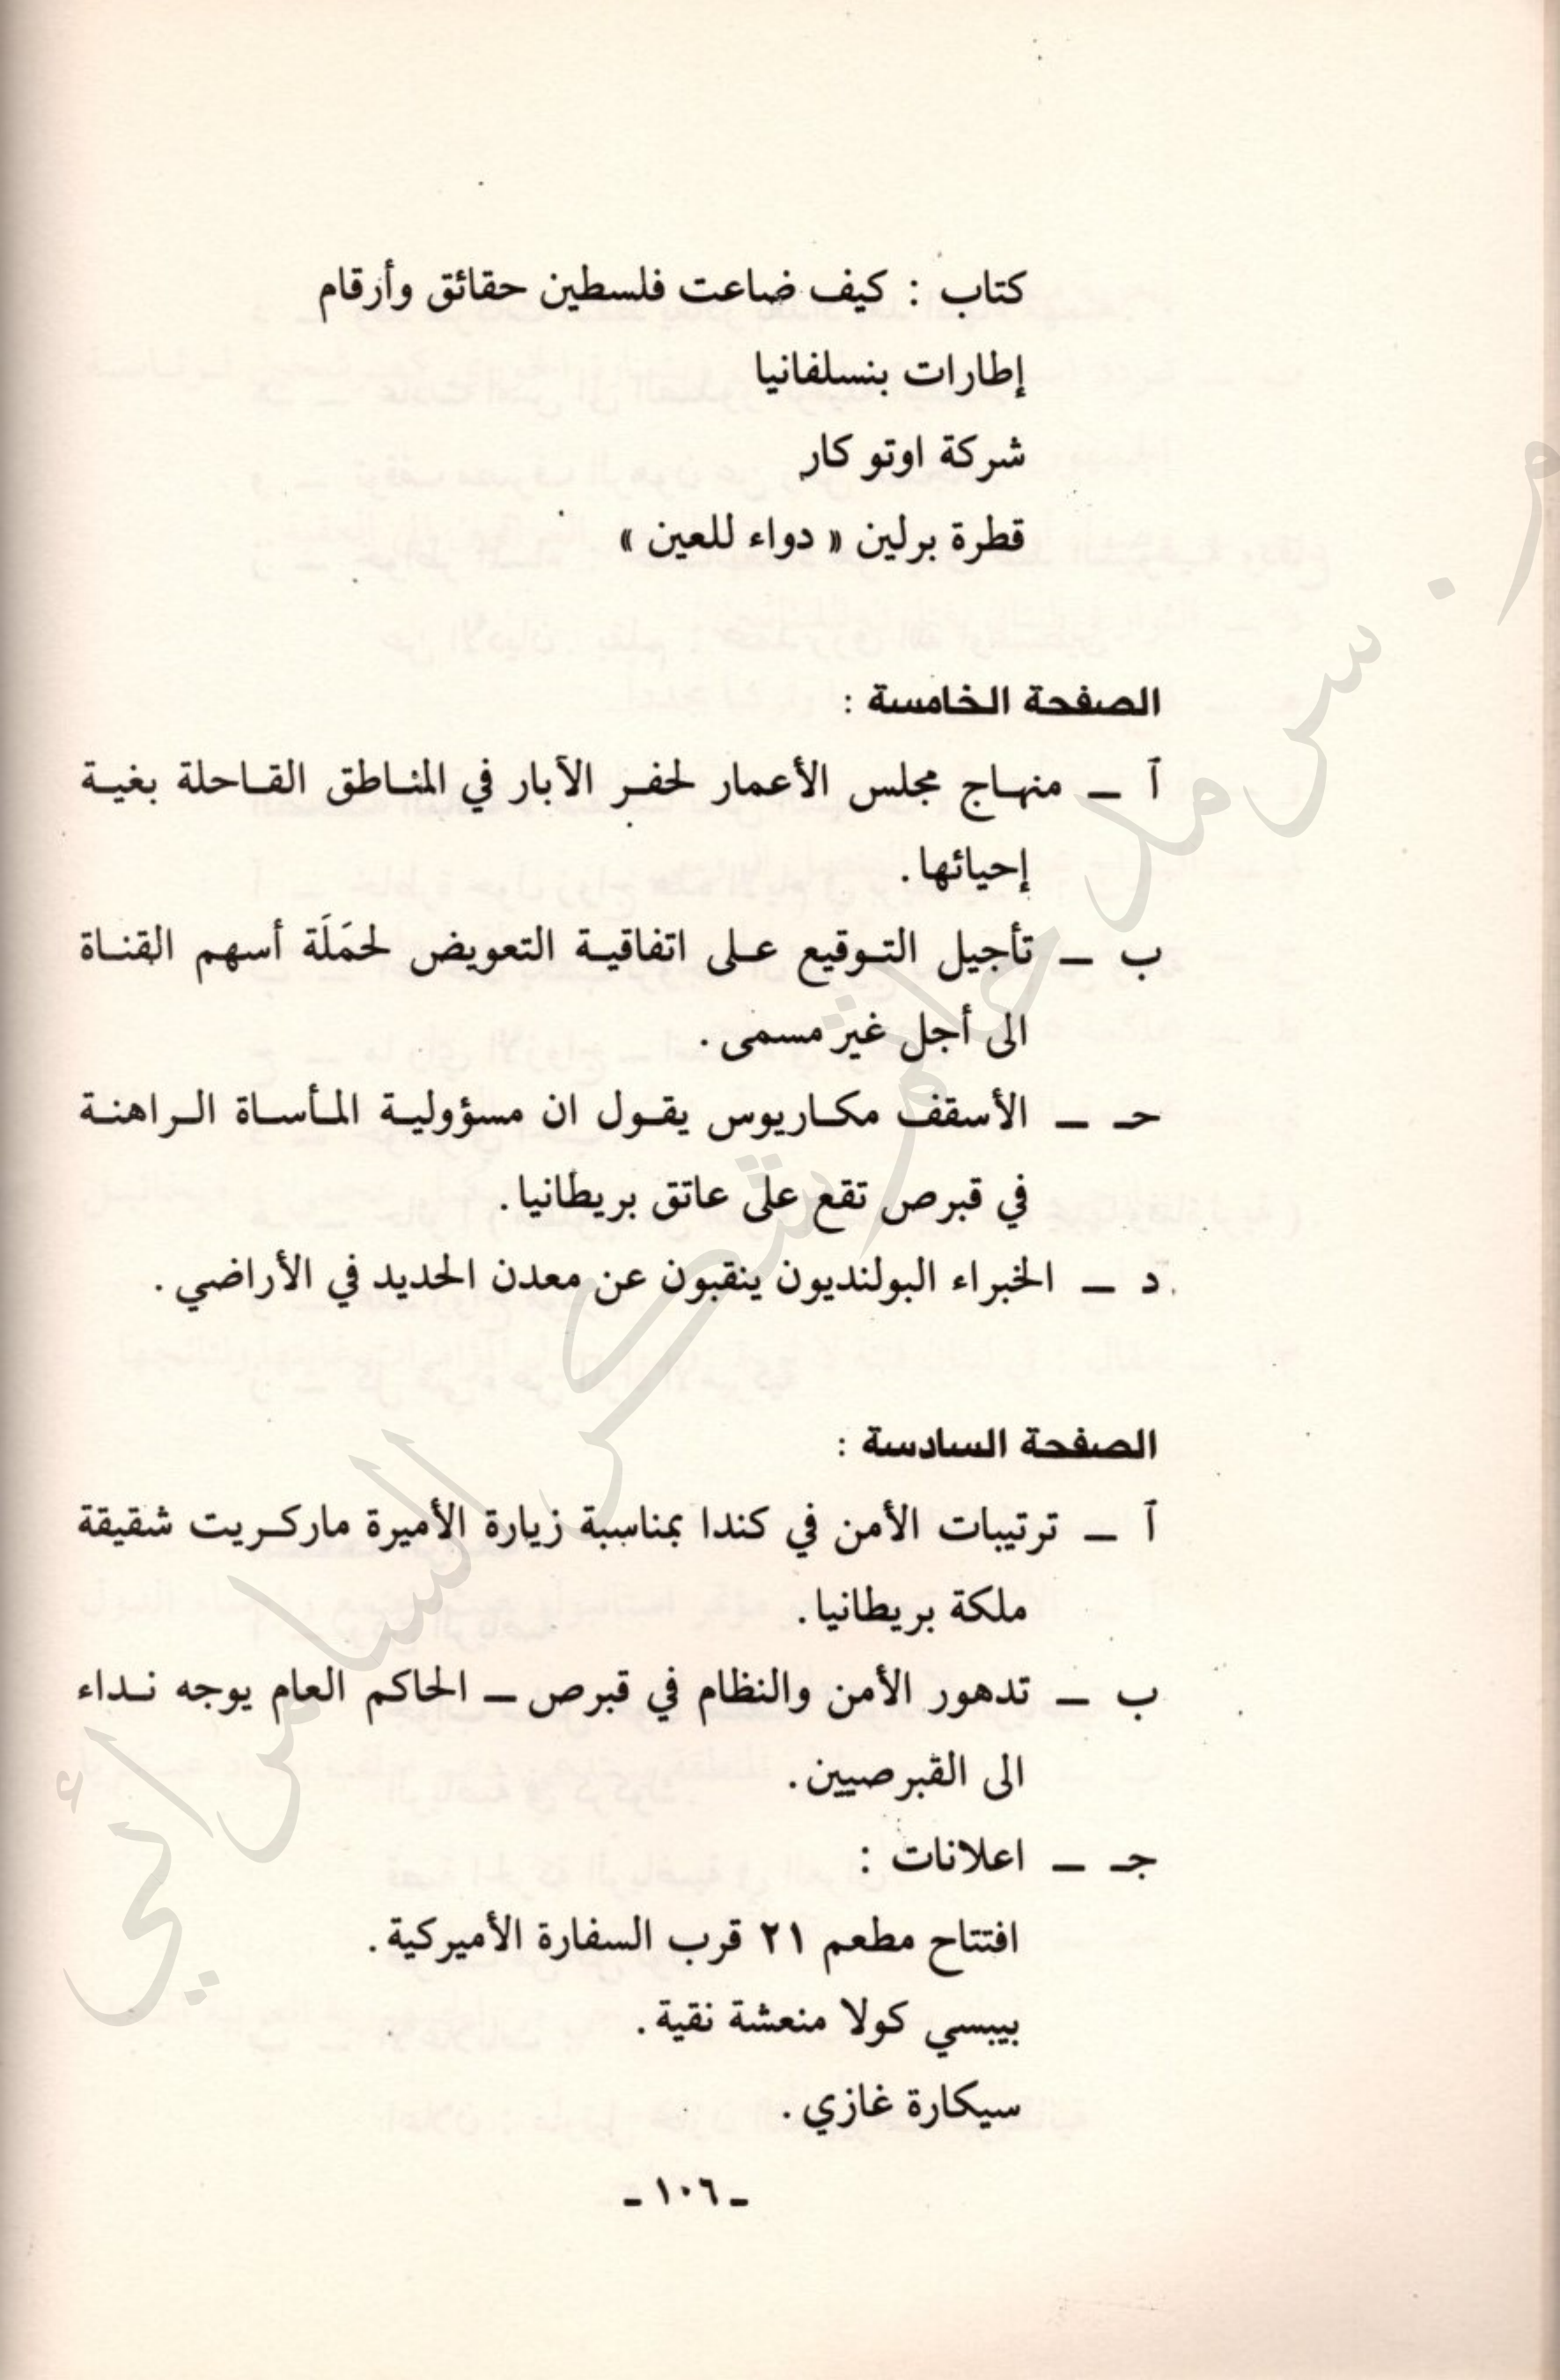 كتاب : كيف ضاعت فلسطين حقائق وأرقام
إطارات بنسلفانيا
شركة اوتو كار
قطرة برلين « دواء للعين »
الصفحة الخامسة :
آ ــ منهاج مجلس الأعمار لحفر الآبار في المناطق القاحلة بغية
إحيائها .
ب ــ تأجيل التوقيع على اتفاقية التعويض لحمَلَة أسهم القناة
الى أجل غير مسمى .
حـ ــ الأسقف مكاريوس يقول ان مسؤولية المأساة الراهنة
في قبرص تقع على عاتق بريطانيا .
د ــ الخبراء البولنديون ينقبون عن معدن الحديد في الأراضي .
الصفحة السادسة :
آ ــ ترتيبات الأمن في كندا بمناسبة زيارة الأميرة ماركريت شقيقة
ملكة بريطانيا .
ب ــ تدهور الأمن والنظام في قبرص ــ الحاكم العام يوجه نداء
الى القبرصيين .
جـ ــ اعلانات :
افتتاح مطعم ٢١ قرب السفارة الأميركية .
بيبسي كولا منعشة نقية .
سيكارة غازي .
ـ ١٠٦ ـ
م . سرمد حاتم شكر السامرائي